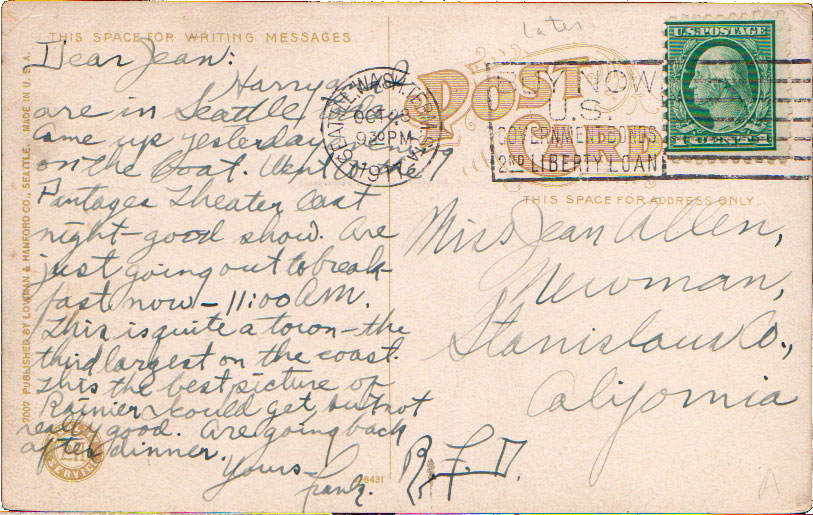 THIS SPACE FOR WRITING MESSAGES.
Dear Jean:
Harry
are in Seattle
Came up yesterday
on the boat. Went to the
Pantages Theater last
night - good show. Are
just going out to break-
fast now - 11:00 A.M.
This is quite a town - the
third largest on the coast.
This the best picture of
Rainier I could get, but not
really good. Are going back
after dinner.
Yours -
Frank.
2002 PUBLISHED BY LOWMAN & HANFORD CO., SEATTLE. MADE IN U.S.A.
SERVICE
Later
POST
CARD
SEATTLE, WASH.
OCT 28
930 PM
1917
BUY NOW
U.S.
GOVERNMENT BONDS
2ND LIBERTY LOAN
U.S. POSTAGE
THIS SPACE FOR ADDRESS ONLY.
Miss Jean Allen,
Newman,
Stanislaus Co.,
California
R.F.D.
A